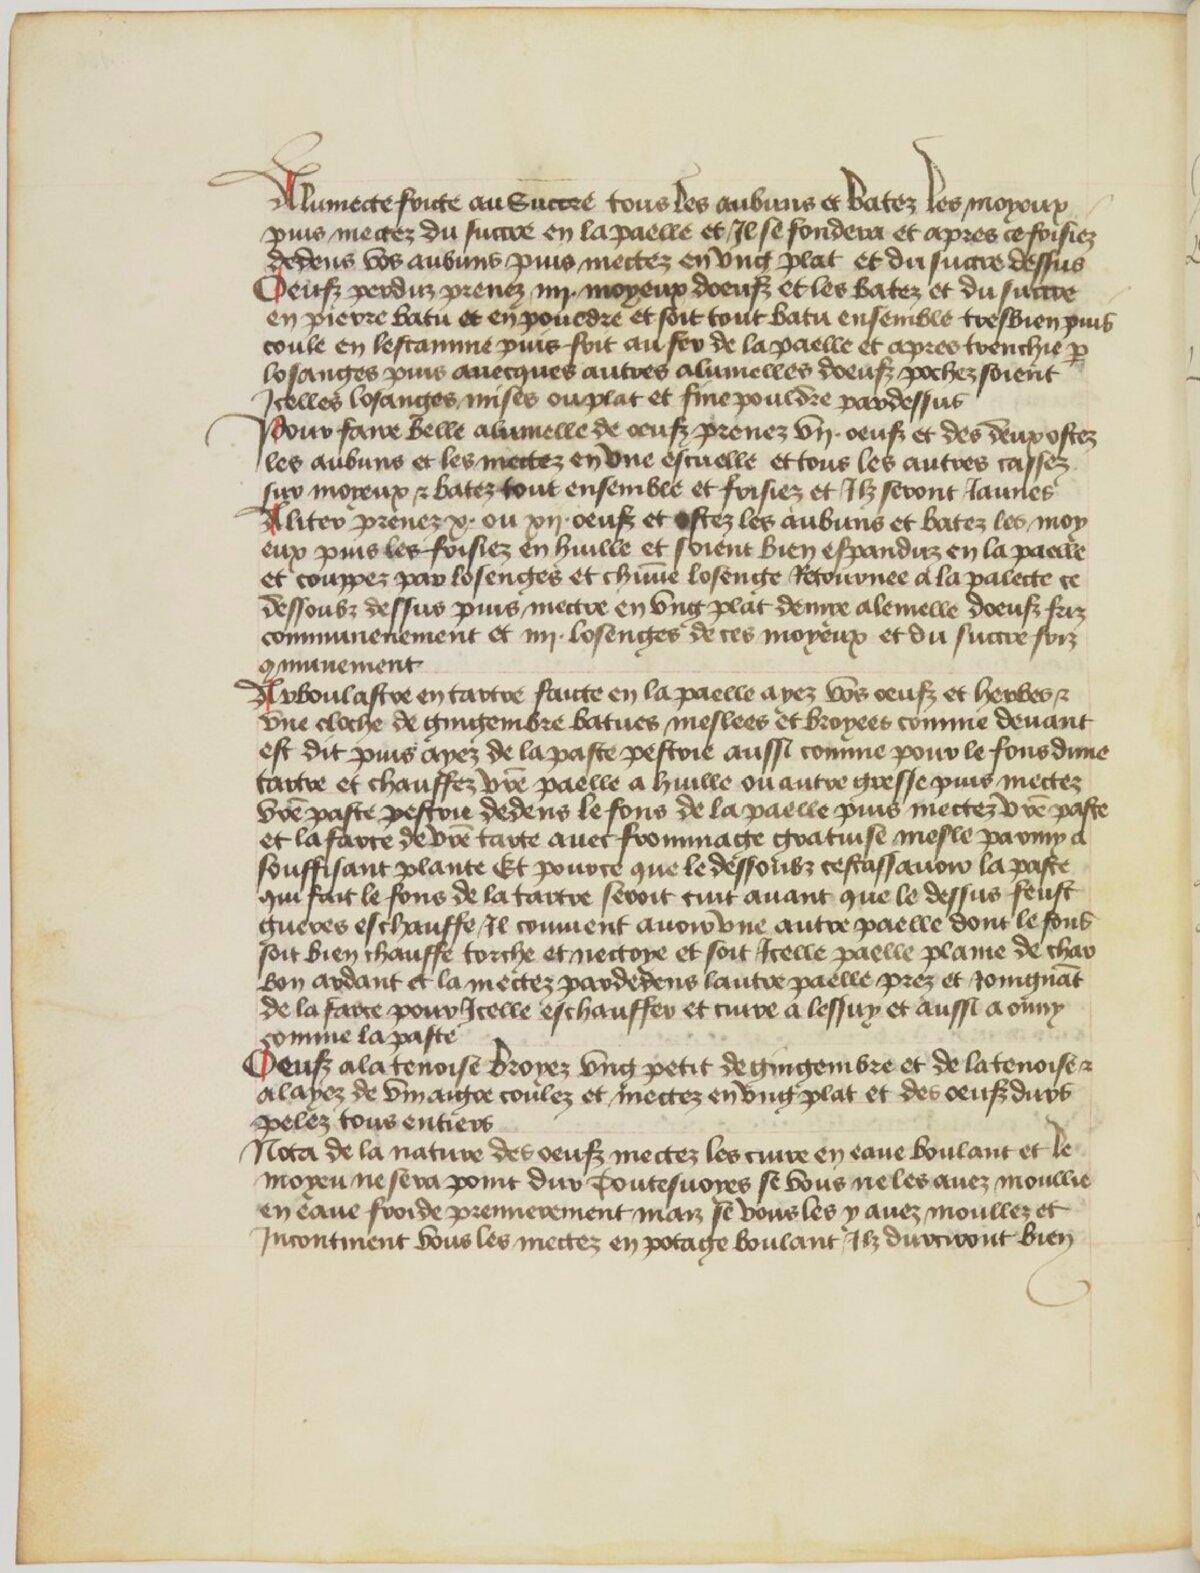 Alumecte fricte au Succre tous les aubuns et batez les moyeux
puis mectez du succre en la paelle et Il se fondera et apres ce frisiez
dedens vos aubuns puis mectez en vng plat et du succre dessus
Oeufz perduz prenez iiij. moyeux doeufz et les batez et du succre
en pierre batu et en pouldre et soit tout batu ensemble tresbien puis
coule en lestamine puis frit au fer de la paelle et apres trenchie p̱
losanges puis auecques autres alumelles doeufz pochez soient
Icelles losanges mises ou plat et fine pouldre pardessus
Pour faire belle alumelle de oeufz prenez vij. oeufz et des deux ostez
les aubuns et les mectez en vne escuelle et tous les autres cassez
sur moyeux ⁊ batez tout ensemble et frisiez et Ilz seront Jaunes
Aliter prenez x. ou xij. oeufz et ostez les aubuns et batez les moy
eux puis les frisiez en huille et soient bien espanduz en la paelle
et couppez par losenges et chũne losenge Retournee a la palecte ce
dessoubz dessus puis mectre en vng plat demie alemelle doeufz friz
communenement et iiij. losenges de ces moyeux et du succre friz
ꝯmunement
Arboulastre en tartre faicte en la paelle ayez vos oeufz et herbes ⁊
vne cloche de gingembre batues meslees et broyees comme deuant
est dit puis ayez de la paste pestrie aussi comme pour le fons dune
tartre et chauffez vr̃e paelle a huille ou autre gresse puis mectez
vr̃e paste pestrie dedens le fons de la paelle puis mectez vr̃e paste
et la farce de vr̃e tarte auec frommage gratuise mesle parmy a
souffisant plante Et pource que le dessoubz cestassauoir la paste
qui fait le fons de la tartre seroit cuit auant que le dessus feust
gueres eschauffe Il conuient auoir vne autre paelle dont le fons
soit bien chauffe torche et nectoye et soit Icelle paelle plaine de char
bon ardant et la mectez pardedens lautre paelle prez et Joingnãt
de la farce pour Icelle eschauffer et cuire a lessuy et aussi a ouny
comme la paste
Oeufz a la tenoise Broyez vng petit de gingembre et de la tenoise ⁊
alayez de vin aigre coulez et mectez en vng plat et des oeufz durs
pelez tous entiers
Nota de la nature des oeufz mectez les cuire en eaue boulant et le
moyeu ne sera point dur Toutesuoyes se vous ne les auez moullie
en eaue froide premierement maiz se vous les y auez moullez et
Incontinent vous les mectez en potage boulant Ilz durciront bien